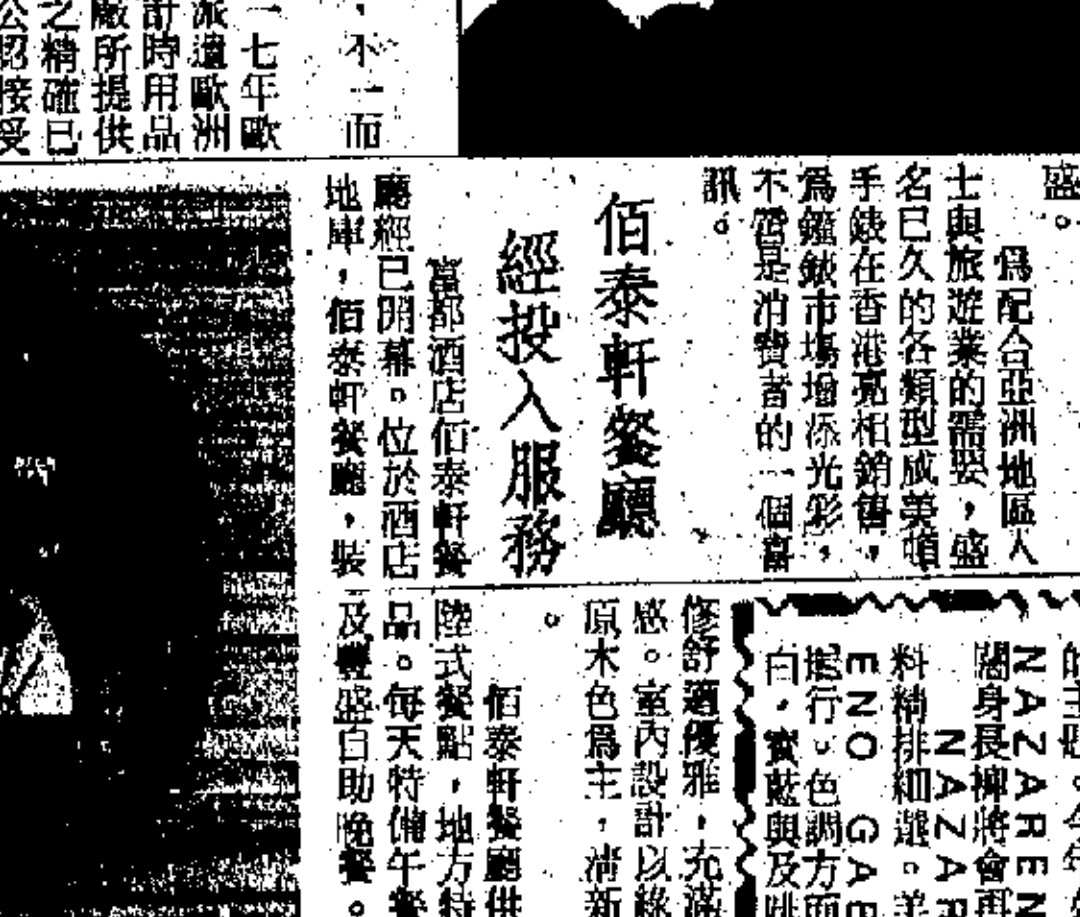 ，不一而
一七年歐
派遣歐洲
計時用品
廠所提供
之精確已
公認接受
盛。
爲配合亞洲地區人
士與旅遊業的需要，盛
名已久的各類型威美頓
手錶在香港亮相銷售，
爲鐘錶市場增添光彩，
不啻是消費者的一個喜
訊。
佰泰軒餐廳
經投入服務
富都酒店佰泰軒餐
廳經已開幕。位於酒店
地庫，佰泰軒餐廳，裝
修舒適優雅，充滿
感。室內設計以綠
原木色爲主，清新
。
佰泰軒餐廳供
陸式餐點，地方特
品。每天特備午餐
及豐盛自助晚餐。
的主題。今年
NAZAREN
闊身長褲將會再
NAZAR
料精挑細選。
ENO GAE
能行。色調方面
白，寶藍與及